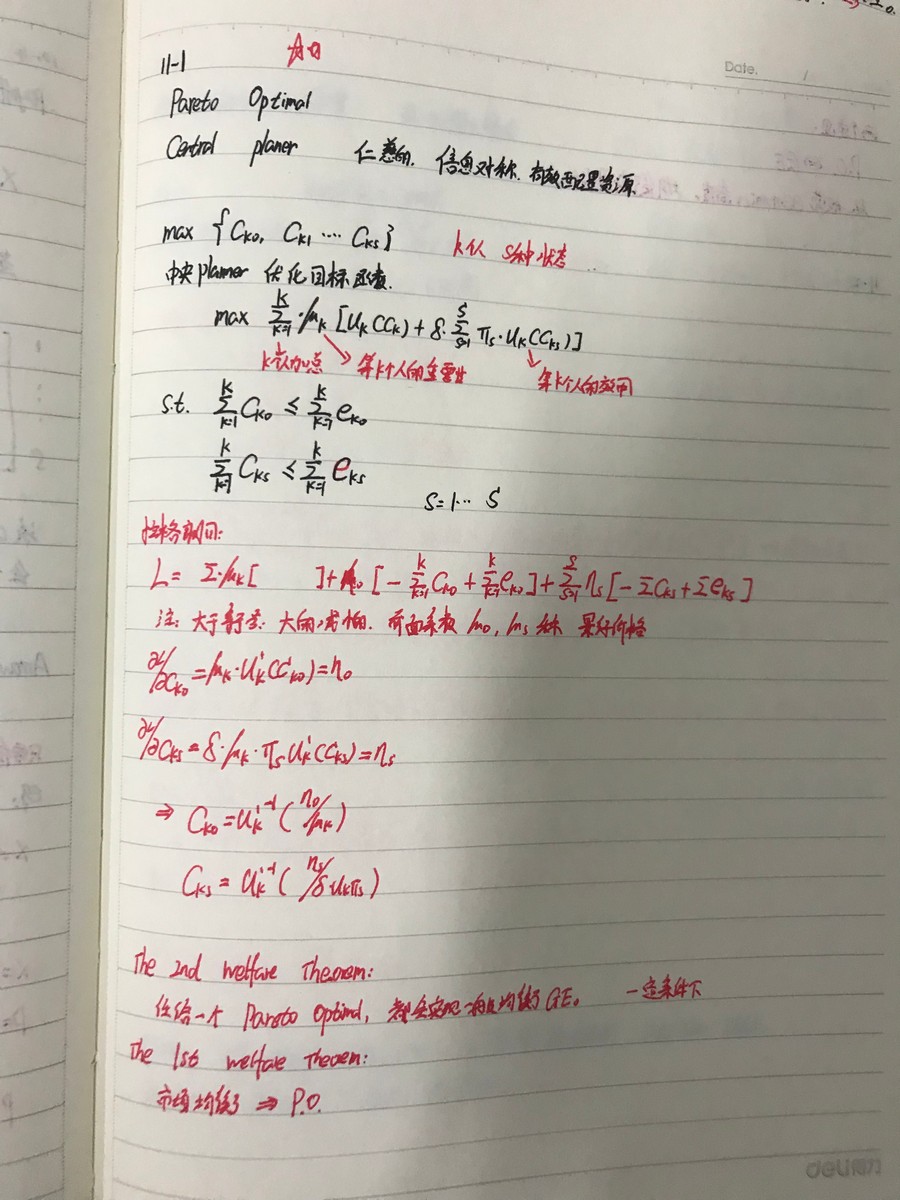 Date. /
11-1
Pareto Optimal
Central planer 仁慈的. 信息对称. 有效配置资源.
max {C_{k0}, C_{k1} ···· C_{ks}} k个人 S种状态
中央planner 优化目标函数.
max \sum_{k=1}^{K} · μ_k [u_k(C_k) + δ· \sum_{s=1}^{S} π_s · u_k(C_{ks})]
第k个人的重要性 第k个人的效用
s.t. \sum_{k=1}^{K} C_{k0} ≤ \sum_{k=1}^{K} e_{k0}
\sum_{k=1}^{K} C_{ks} ≤ \sum_{k=1}^{K} e_{ks}
S=1··· S
拉格朗日:
L = Σ·μ_k [ ] + η_0 [- \sum_{k=1}^{K} C_{k0} + \sum_{k=1}^{K} e_{k0}] + \sum_{s=1}^{S} η_s [-ΣC_{ks} + Σe_{ks}]
注: 大于等于. 大的减小的. 前面系数
∂L/∂C_{k0} = μ_k · u_k'(C_{k0}) = η_0
∂L/∂C_{ks} = δ·μ_k · π_s u_k'(C_{ks}) = η_s
⇒ C_{k0} = u_k'^{-1} (η_0/μ_k)
C_{ks} = u_k'^{-1} (η_s/δ·u_kπ_s)
The 2nd welfare Theorem:
任给一个 Pareto Optimal, 都会实现一般均衡 GE. 一定条件下
The 1st welfare Theoem:
市场均衡 ⇒ P.O.
deli得力